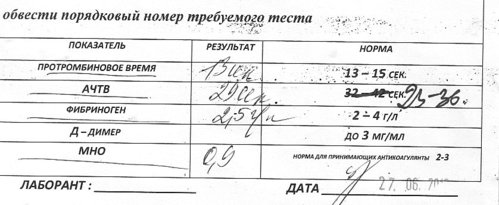 обвести порядковый номер требуемого теста
ПОКАЗАТЕЛЬ РЕЗУЛЬТАТ НОРМА
ПРОТРОМБИНОВОЕ ВРЕМЯ 13 сек 13 – 15 СЕК.
АЧТВ 29 сек. 32–42 СЕК.
ФИБРИНОГЕН 2,5 г/л 2 – 4 г/л
Д – ДИМЕР ДО 3 МГ/МЛ
МНО 0,9 НОРМА ДЛЯ ПРИНИМАЮЩИХ АНТИКОАГУЛЯНТЫ 2-3
ЛАБОРАНТ : ДАТА 27. 06.